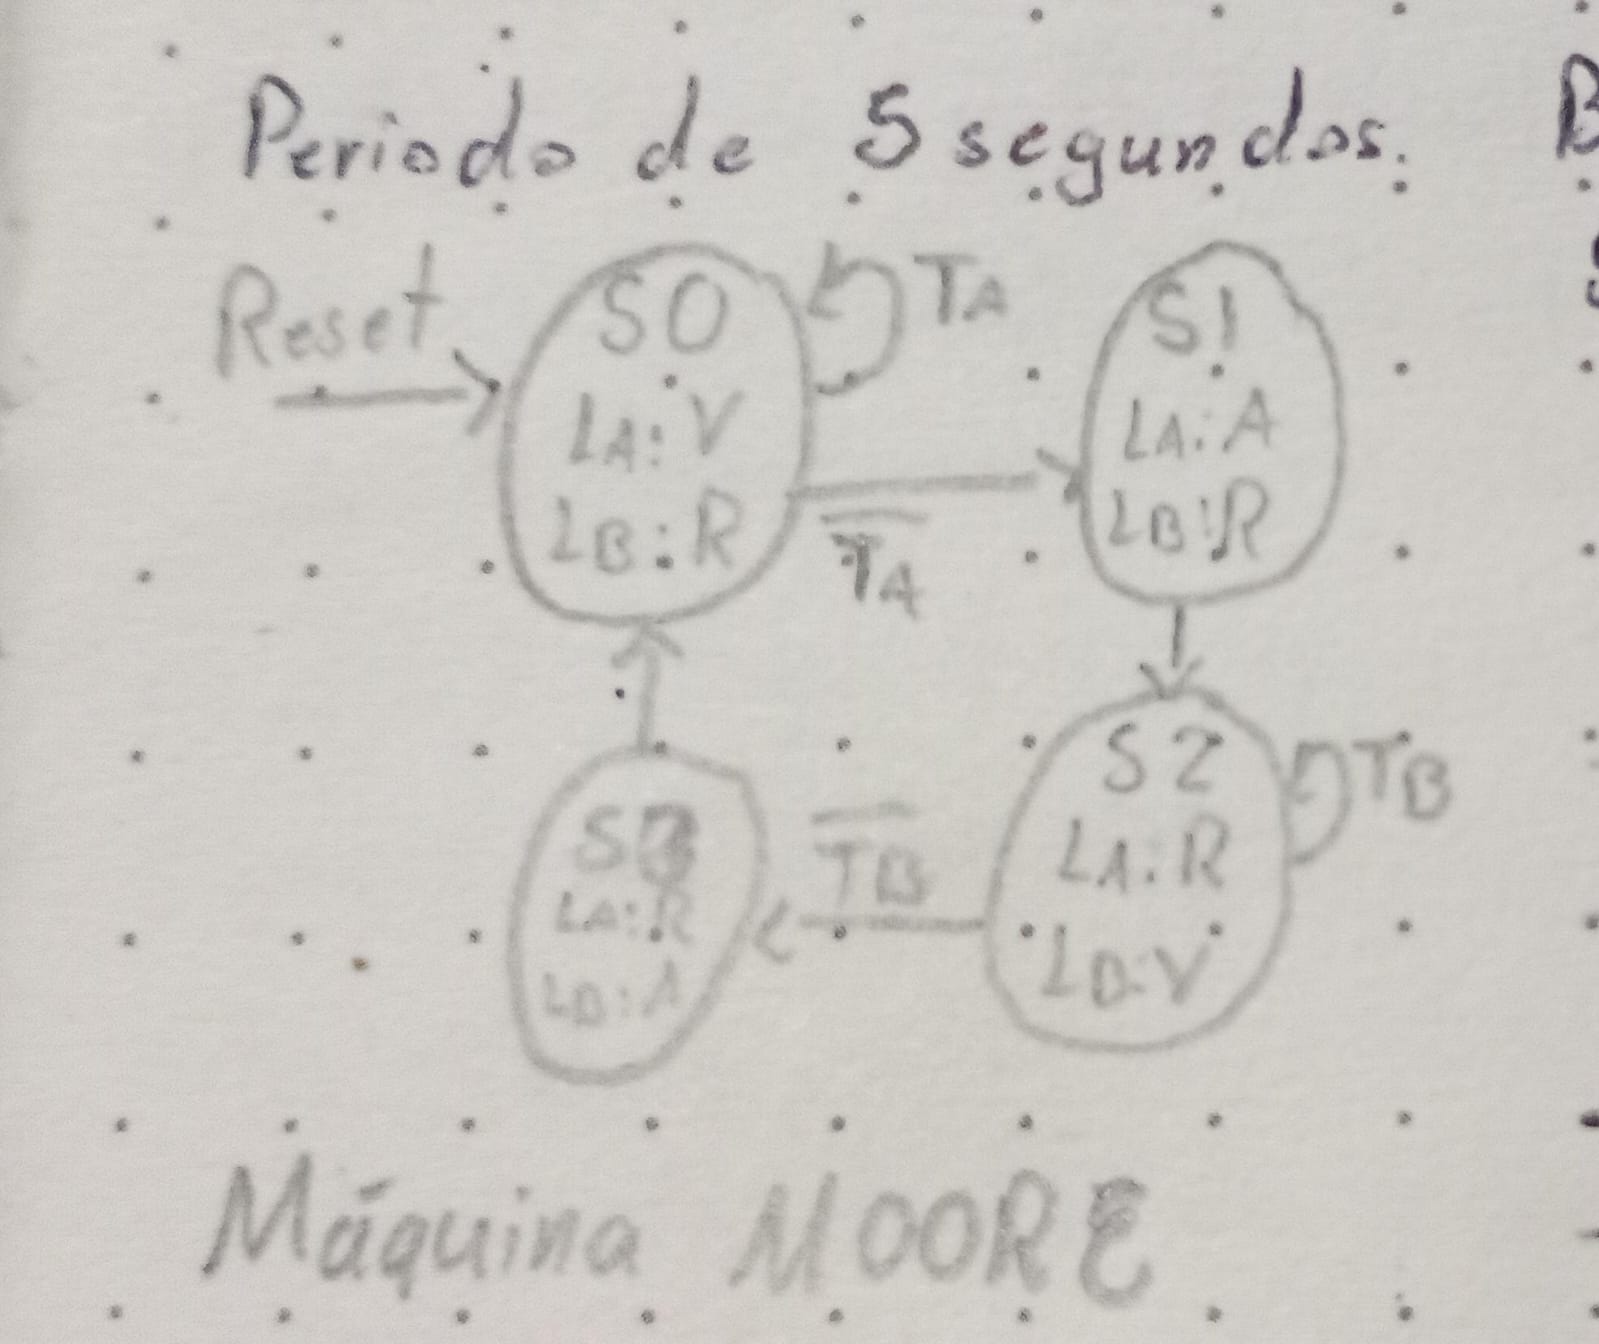 Periodo de 5 segundos. B
Reset
S0
LA: V
LB: R
TA
T̅A̅
S1
LA: A
LB: R
S2
LA: R
LB: V
TB
T̅B̅
S3
LA: R
LB: A
Máquina MOORE